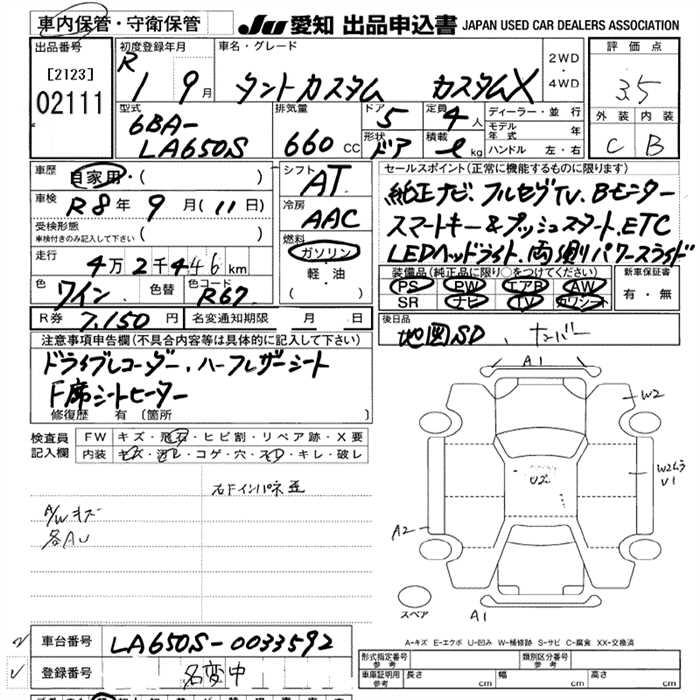 車内保管・守衛保管 JU 愛知 出品申込書 JAPAN USED CAR DEALERS ASSOCIATION
出品番号 初度登録年月 車名・グレード 2WD・4WD 評価点
[2123] R 1 9月 タントカスタム カスタムX 3.5
02111 型式 排気量 ドア 5 定員 4人 ディーラー・並行 外装 内装
6BA- モデル年式 年
LA650S 660CC 形状 ドア 積載 kg ハンドル 左・右 C B
車歴 自家用・( ) シフト AT セールスポイント(正常に機能するものに限ります)
車検 R8年9月(11日) 冷房 AAC 純正ナビ、フルセグTV、Bモニター
受検形態 車検付きのみ記入して下さい ( ) スマートキー&プッシュスタート、ETC
走行 4万2千446km 燃料 ガソリン・軽油・( ) LEDヘッドライト、両側パワースライド
装備品(純正品に限り○をつけてください) 新車保証書
色 ワイン 色替 色コード R67 PS PW エアB AW 有・無
SR ナビ TV カワシート
R券 7,150円 名変通知期限 月 日 後日品
地図SD、ナンバー
注意事項申告欄(不具合内容等は具体的に記入して下さい)
ドライブレコーダー、ハーフレザーシート
F席シートヒーター
修復歴 有 [箇所 ]
検査員記入欄 FW キズ・飛石・ヒビ割・リペア跡・X要
内装 キズ・汚レ・コゲ・穴・スレ・キレ・破レ
A1
W2
右ドインパネ
A/Wキズ
各AU
U2
W2ムラ
U1
A2
スペア
A1
A-キズ E-エクボ U-凹み W-補修跡 S-サビ C-腐食 XX-交換済
車台番号 LA650S-0033592
登録番号 名変中
形式指定番号 参考 類別区分番号 参考
車庫証明用 参考 長さ cm 幅 cm 高さ cm